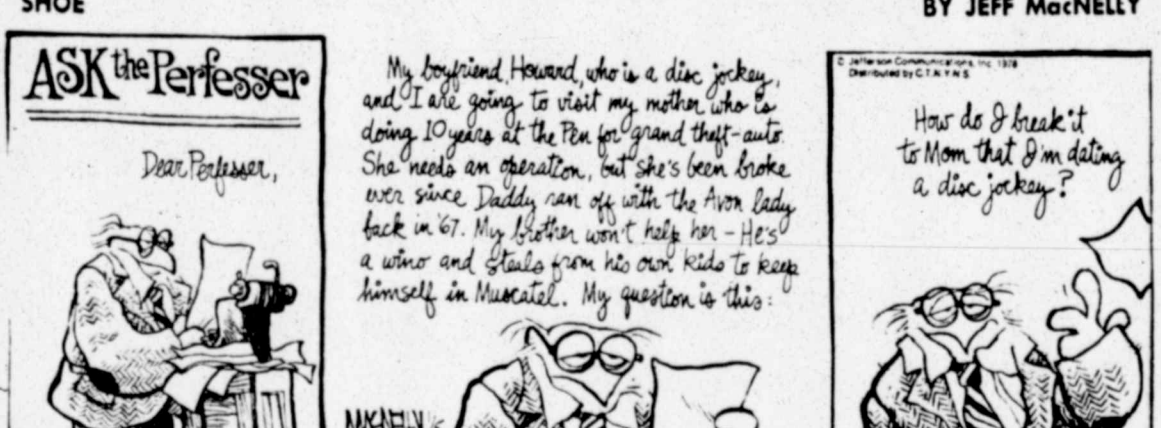 SHOE
BY JEFF MacNELLY
ASK the Perfesser
Dear Perfesser,
My boyfriend, Howard, who is a disc jockey,
and I are going to visit my mother who is
doing 10 years at the Pen for grand theft-auto.
She needs an operation, but she's been broke
ever since Daddy ran off with the Avon lady
back in '67. My brother won't help her - He's
a wino and steals from his own kids to keep
himself in Muscatel. My question is this:
MACNELLY
© Jefferson Communications, Inc. 1978
Distributed by C.T.N.Y.N.S.
How do I break it
to Mom that I'm dating
a disc jockey?